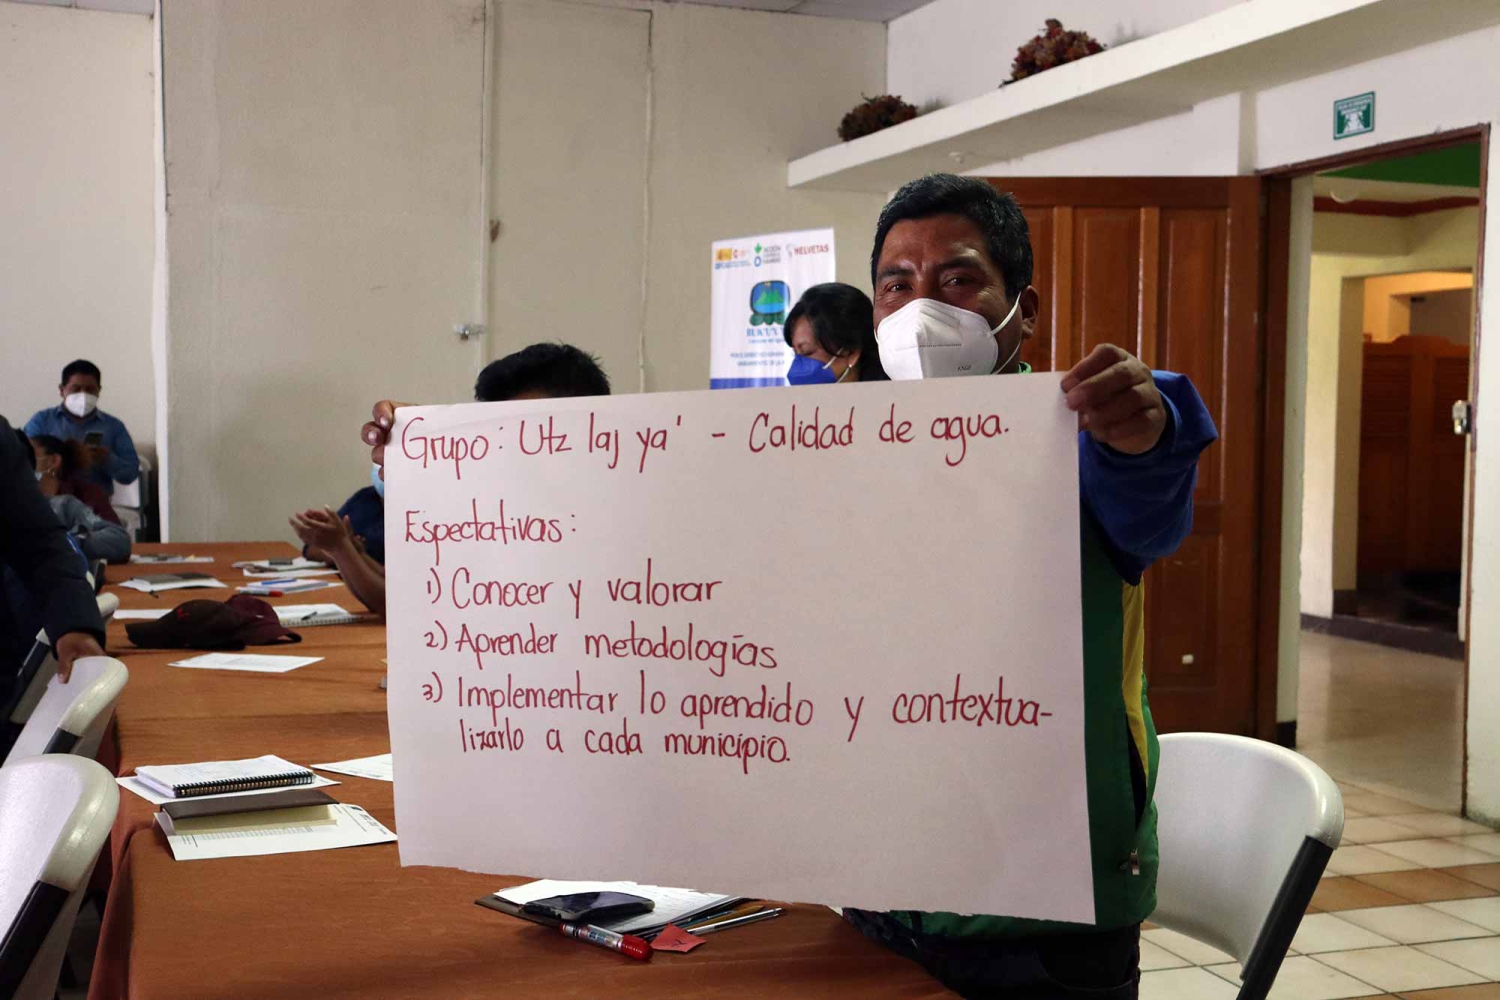 HELVETAS
Grupo: Utz laj ya' - Calidad de agua.
Espectativas:
1) Conocer y valorar
2) Aprender metodologías
3) Implementar lo aprendido y contextua-
lizarlo a cada municipio.